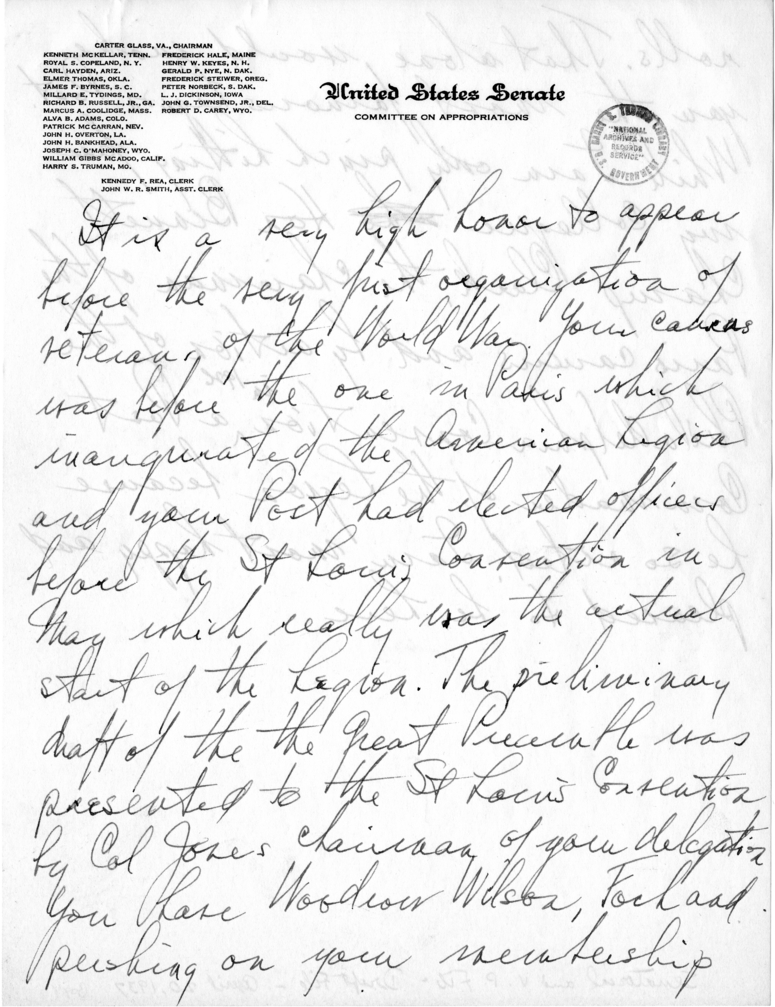 CARTER GLASS, VA., CHAIRMAN
KENNETH McKELLAR, TENN. FREDERICK HALE, MAINE
ROYAL S. COPELAND, N. Y. HENRY W. KEYES, N. H.
CARL HAYDEN, ARIZ. GERALD P. NYE, N. DAK.
ELMER THOMAS, OKLA. FREDERICK STEIWER, OREG.
JAMES F. BYRNES, S. C. PETER NORBECK, S. DAK.
MILLARD E. TYDINGS, MD. L. J. DICKINSON, IOWA
RICHARD B. RUSSELL, JR., GA. JOHN G. TOWNSEND, JR., DEL.
MARCUS A. COOLIDGE, MASS. ROBERT D. CAREY, WYO.
ALVA B. ADAMS, COLO.
PATRICK McCARRAN, NEV.
JOHN H. OVERTON, LA.
JOHN H. BANKHEAD, ALA.
JOSEPH C. O'MAHONEY, WYO.
WILLIAM GIBBS McADOO, CALIF.
HARRY S. TRUMAN, MO.
KENNEDY F. REA, CLERK
JOHN W. R. SMITH, ASST. CLERK
United States Senate
COMMITTEE ON APPROPRIATIONS
HARRY S. TRUMAN LIBRARY
"NATIONAL
ARCHIVES AND
RECORDS
SERVICE"
U.S. GOVERNMENT
It is a very high honor to appear
before the very first organization of
veterans of the World War. Your caucus
was before the one in Paris which
inaugurated the American Legion
and your Post had elected officers
before the St Louis Convention in
May which really was the actual
start of the Legion. The preliminary
draft of the the great Preamble was
presented to the St Louis Convention
by Col Jones chairman of your delegation
You have Woodrow Wilson, Foch and
pershing on your membership